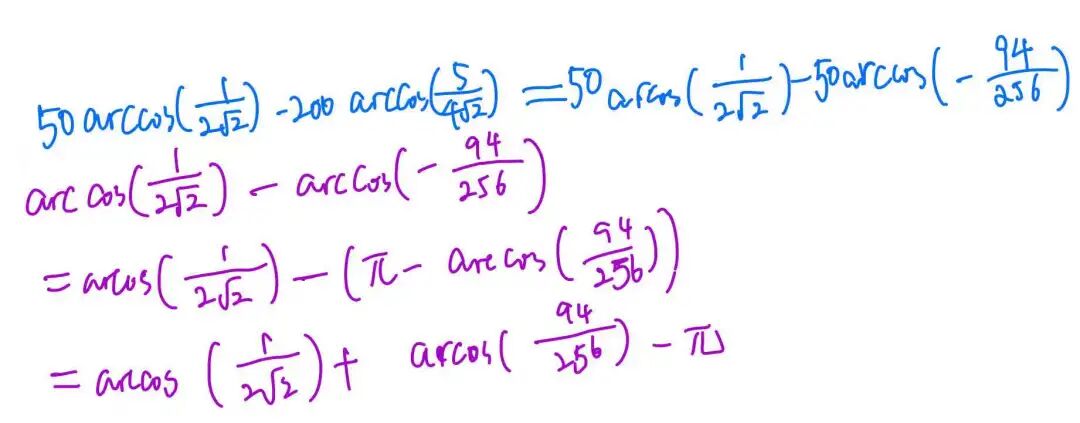 50 arccos(1/2√2) - 200 arccos(5/4√2) = 50 arcos(1/2√2) - 50 arccos(- 94/256)
arc cos(1/2√2) - arccos(- 94/256)
= arcos(1/2√2) - (π - arccos(94/256))
= arcos(1/2√2) + arcos(94/256) - π